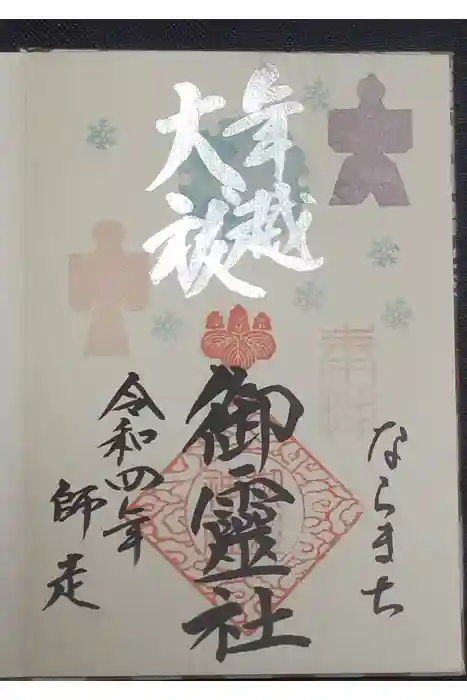 年越
大祓
奉拝
ならまち
御靈社
令和四年
師走